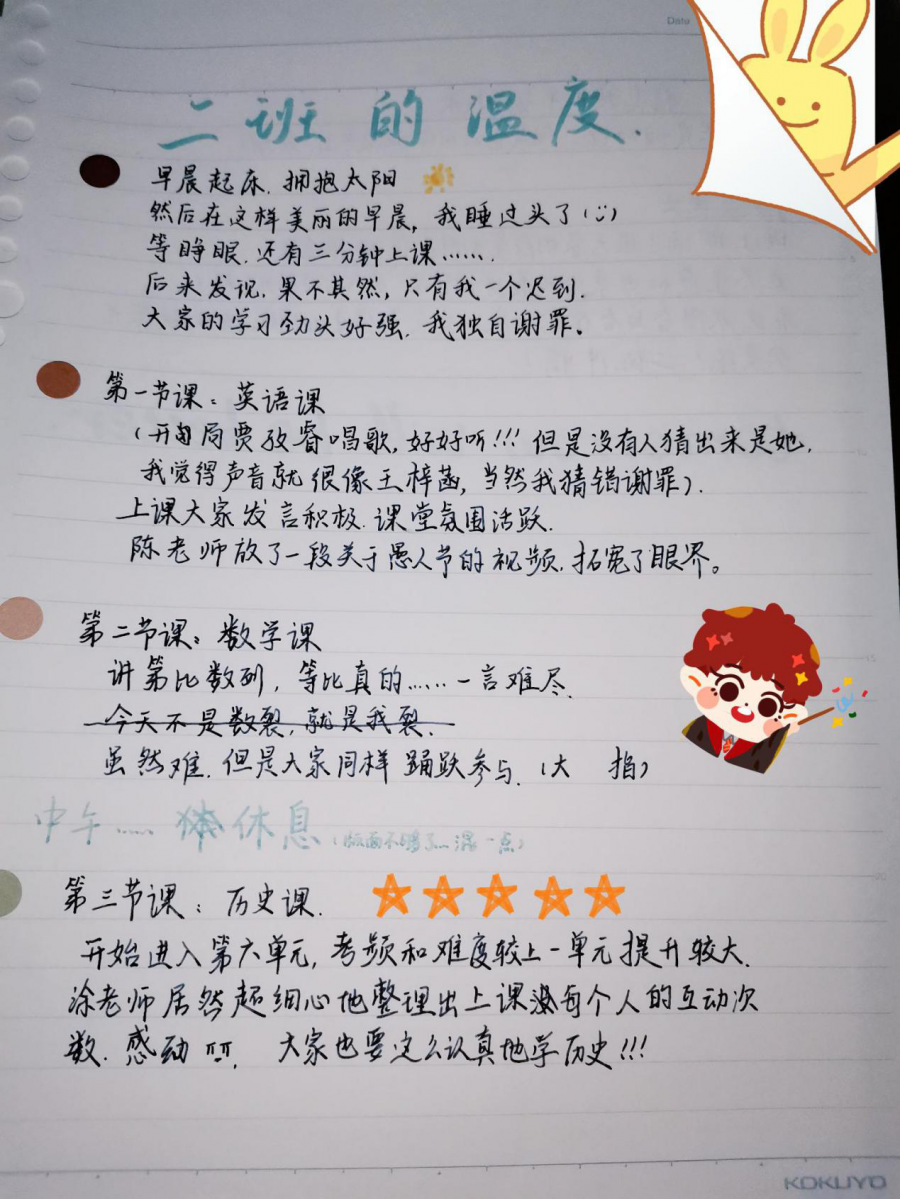 Date
二班的温度.
早晨起床.拥抱太阳
然后在这样美丽的早晨,我睡过头了(:)
等睁眼.还有三分钟上课…….
后来发现.果不其然,只有我一个迟到.
大家的学习劲头好强.我独自谢罪。
第一节课:英语课
(开局贾孜睿唱歌,好好听!!!但是没有人猜出来是她.
我觉得声音就很像王梓菡,当然我猜错谢罪).
上课大家发言积极.课堂氛围活跃.
陈老师放了一段关于愚人节的视频.拓宽了眼界。
第二节课:数学课
讲第比数列,等比真的……一言难尽.
今天不是数裂,就是我裂.
虽然难.但是大家同样踊跃参与.(大 拍)
中午……休息(版面不够了..混一点)
第三节课:历史课.
开始进入第六单元,考频和难度较上一单元提升较大.
涂老师居然超细心地整理出上课每个人的互动次
数.感动 TT. 大家也要这么认真地学历史!!!
KOKUYO